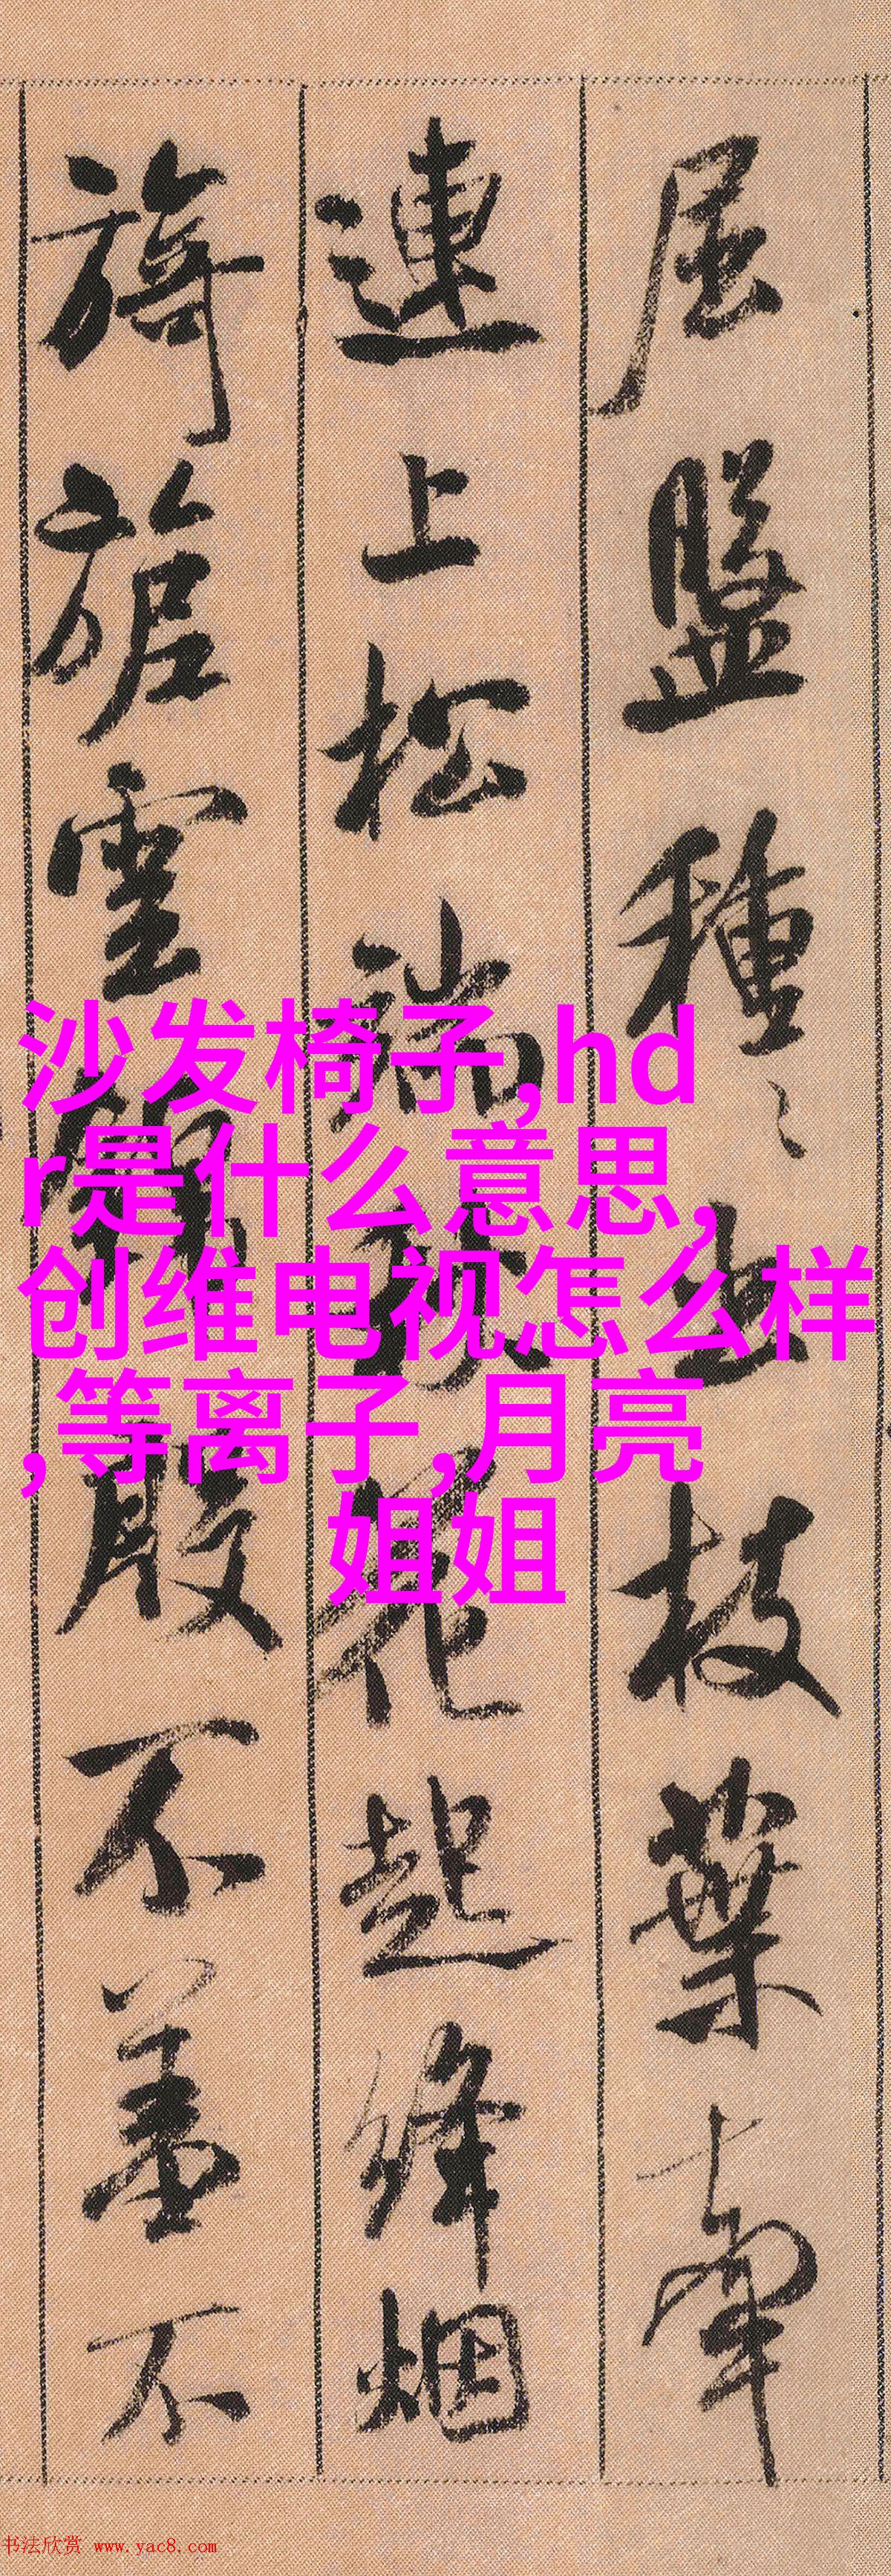 屈盤種〻出枝葉牽
連上松端秋花起絳烟
旖旎雲錦殷不羞不
沙发椅子,hd
r是什么意思,
创维电视怎么样
,等离子,月亮
姐姐
书法欣赏 www.yac8.com